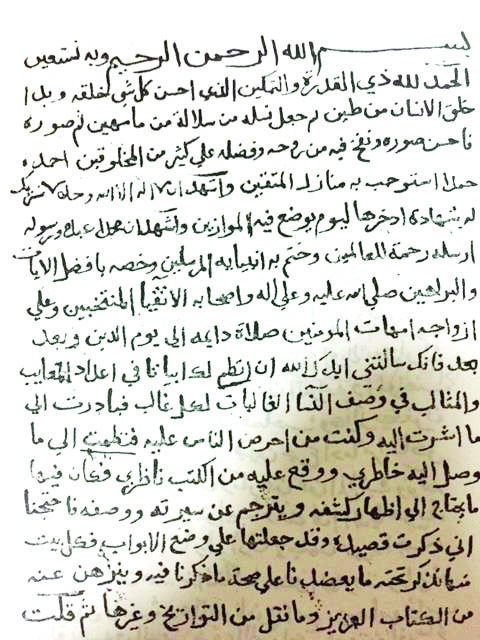 بسم الله الرحمن الرحيم وبه نستعين
الحمد لله ذي القدرة والتمكين الذي احسن كل شي خلقه وبدا
خلق الانسان من طين ثم جعل نسله من سلالة من ما مهين ثم صوره
فاحسن صوره ونفخ فيه من روحه وفضله علي كثير من المخلوقين احمده
حمدا استوجب به منازل المتقين واشهد ان لا اله الا الله وحده لا شريك
له شهادة ادخرها ليوم يوضع فيه الموازين واشهد ان محمدا عبده ورسوله
ارسله رحمة للعالمين وختم به انبيايه المرسلين وخصه بافضل الايات
والبراهين صلي الله عليه وعلي اله واصحابه الاتقيا المنتخبين وعلي
ازواجه امهات المومنين صلاة دايمه الي يوم الدين وبعد
بعد فانك سالتني ايدك الله ان انظم لك ابياتا في اعداد المعايب
والمثالب في وصف النسا الغالبات لكل غالب فبادرت الي
ما اشرت اليه وكنت من احرص الناس عليه فنظمت الي ما
وصل اليه خاطري ووقع عليه من الكتب ناظري فكان فيها
ما يحتاج الي اظهار كشفه ويترجم عن سيرته ووصفه فاحتجنا
الي ذكر قصيدة وقد جعلتها علي وضع الابواب فكل بيت
منها نذكر تحته ما يعضدنا علي صحة ما ذكرنا فيه ويبرهن عنه
من الكتاب العزيز وما نقل من التواريخ وغيرها ثم قلت